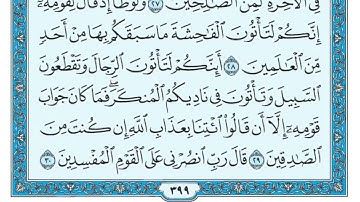 فِي ٱلْأٓخِرَةِ لَمِنَ ٱلصَّٰلِحِينَ ٢٧ وَلُوطًا إِذْ قَالَ لِقَوْمِهِۦٓ
إِنَّكُمْ لَتَأْتُونَ ٱلْفَٰحِشَةَ مَا سَبَقَكُم بِهَا مِنْ أَحَدٍ
مِّنَ ٱلْعَٰلَمِينَ ٢٨ أَئِنَّكُمْ لَتَأْتُونَ ٱلرِّجَالَ وَتَقْطَعُونَ
ٱلسَّبِيلَ وَتَأْتُونَ فِي نَادِيكُمُ ٱلْمُنكَرَ ۖ فَمَا كَانَ جَوَابَ
قَوْمِهِۦٓ إِلَّآ أَن قَالُوا۟ ٱئْتِنَا بِعَذَابِ ٱللَّهِ إِن كُنتَ مِنَ
ٱلصَّٰدِقِينَ ٢٩ قَالَ رَبِّ ٱنصُرْنِي عَلَى ٱلْقَوْمِ ٱلْمُفْسِدِينَ ٣٠
٣٩٩